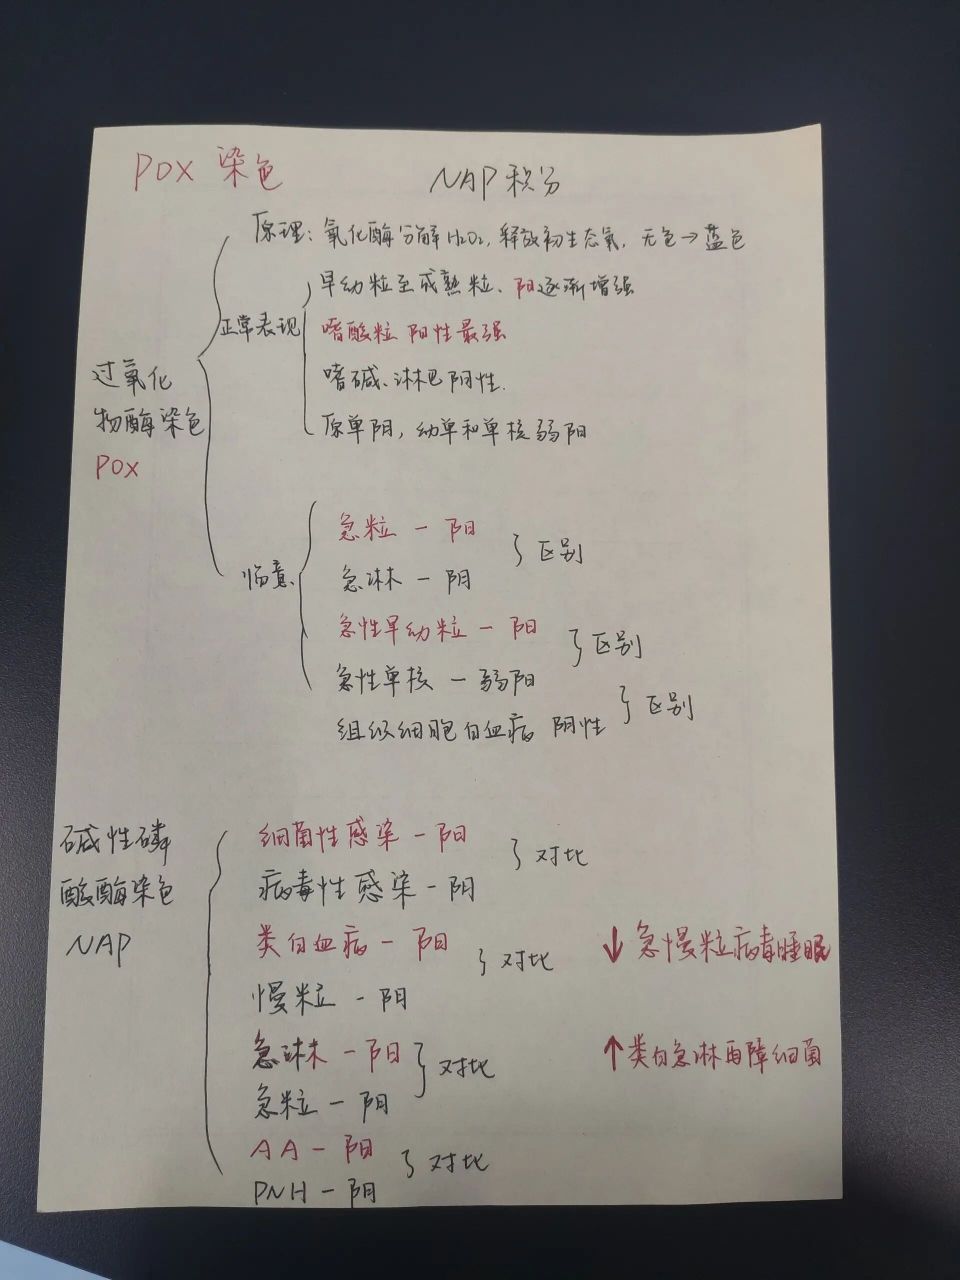 POX 染色
NAP积分
原理：氧化酶分解H₂O₂，释放初生态氧，无色→蓝色
早幼粒至成熟粒、阳逐渐增强
正常表现
嗜酸粒 阳性最强
嗜碱、淋巴阴性.
原单阴，幼单和单核弱阳
过氧化
物酶染色
POX
急粒 — 阳
急淋 — 阴
} 区别
临意
急性早幼粒 — 阳
急性单核 — 弱阳
} 区别
组织细胞白血病 阴性
} 区别
碱性磷
酸酶染色
NAP
细菌性感染 — 阳
病毒性感染 — 阴
} 对比
类白血病 — 阳
慢粒 — 阴
} 对比
↓ 急慢粒病毒睡眠
急淋 — 阳
急粒 — 阴
} 对比
↑ 类白急淋再障细菌
AA — 阳
PNH — 阴
} 对比